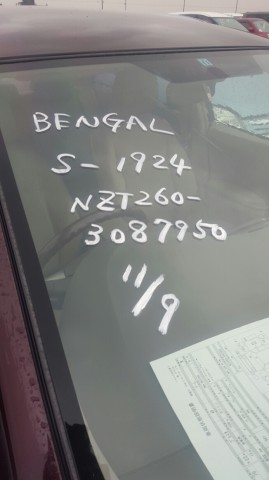 BENGAL
S-1924
NZT260-
3087950
11/9